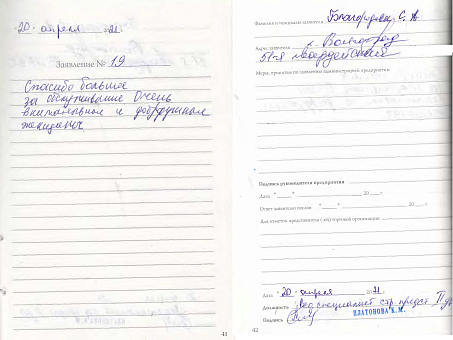 "20" апреля 21.
Заявление № 19
Спасибо большое
за обслуживание Очень
внимательная и добродушная
женщина
41
Фамилия и инициалы заявителя С. А.
Адрес заявителя г. Волгоград
51-я Гвардейская
Меры, принятые по заявлению администрацией предприятия:
Подпись руководителя предприятия
Дата " " 20 г.
Ответ заявителю послан " " 20 г.
Для отметок представителя (-ей) торговой организации
Дата "20" апреля 2021г.
Должность Вед. специалист стр. предст.
Подпись ПЛАТОНОВА К.М.
42